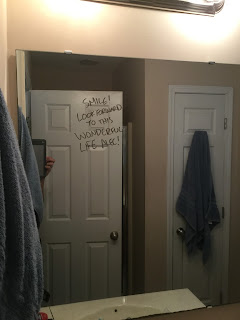 SMILE!
LOOK FORWARD
TO THIS
WONDERFUL
LIFE ALEC!